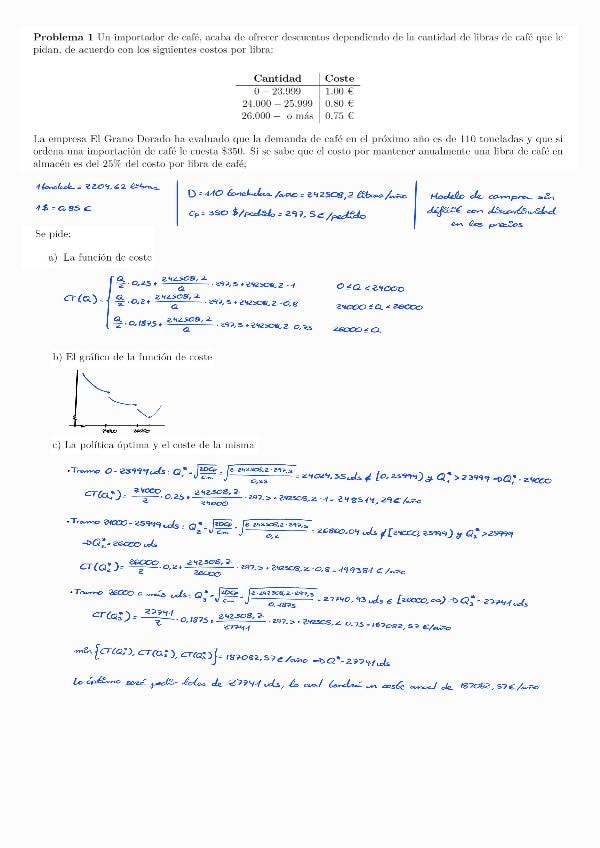 Problema 1 Un importador de café, acaba de ofrecer descuentos dependiendo de la cantidad de libras de café que le
pidan, de acuerdo con los siguientes costos por libra:
Cantidad Coste
0 − 23.999 1.00 €
24.000 − 25.999 0.80 €
26.000 − o más 0.75 €
La empresa El Grano Dorado ha evaluado que la demanda de café en el próximo año es de 110 toneladas y que si
ordena una importación de café le cuesta $350. Si se sabe que el costo por mantener anualmente una libra de café en
almacén es del 25% del costo por libra de café;
1 tonelada = 2204,62 libras
1$ = 0,85 €
D = 110 toneladas/año = 242508,2 libras/año
Cp = 350 $/pedido = 297,5 €/pedido
Modelo de compra sin
déficit con discontinuidad
en los precios
Se pide:
a) La función de coste
CT(Q) =
Q/2 · 0,25 + 242508,2/Q · 297,5 + 242508,2 · 1 0 ≤ Q < 24000
Q/2 · 0,2 + 242508,2/Q · 297,5 + 242508,2 · 0,8 24000 ≤ Q < 26000
Q/2 · 0,1875 + 242508,2/Q · 297,5 + 242508,2 · 0,75 26000 ≤ Q
b) El gráfico de la función de coste
24000 26000
c) La política óptima y el coste de la misma
• Tramo 0-23999 uds: Q₁* = √(2DCp/Cm) = √(2·242508,2·297,5/0,25) = 24024,35 uds ∉ [0,23999) y Q₁* > 23999 ⇒ Q₁* = 24000
CT(Q₁*) = 24000/2 · 0,25 + 242508,2/24000 · 297,5 + 242508,2 · 1 = 248514,29 €/año
• Tramo 24000-25999 uds: Q₂* = √(2DCp/Cm) = √(2·242508,2·297,5/0,2) = 26860,04 uds ∉ [24000, 25999) y Q₂* > 25999
⇒ Q₂* = 26000 uds
CT(Q₂*) = 26000/2 · 0,2 + 242508,2/26000 · 297,5 + 242508,2 · 0,8 = 199381 €/año
• Tramo 26000 o más uds: Q₃* = √(2DCp/Cm) = √(2·242508,2·297,5/0,1875) = 27740,93 uds ∈ [26000,∞) ⇒ Q₃* = 27741 uds
CT(Q₃*) = 27741/2 · 0,1875 + 242508,2/27741 · 297,5 + 242508,2 · 0.75 = 187082,57 €/año
min{CT(Q₁*), CT(Q₂*), CT(Q₃*)} = 187082,57 €/año ⇒ Q* = 27741 uds
Lo óptimo será pedir lotes de 27741 uds, lo cual tendrá un coste anual de 187082,57 €/año